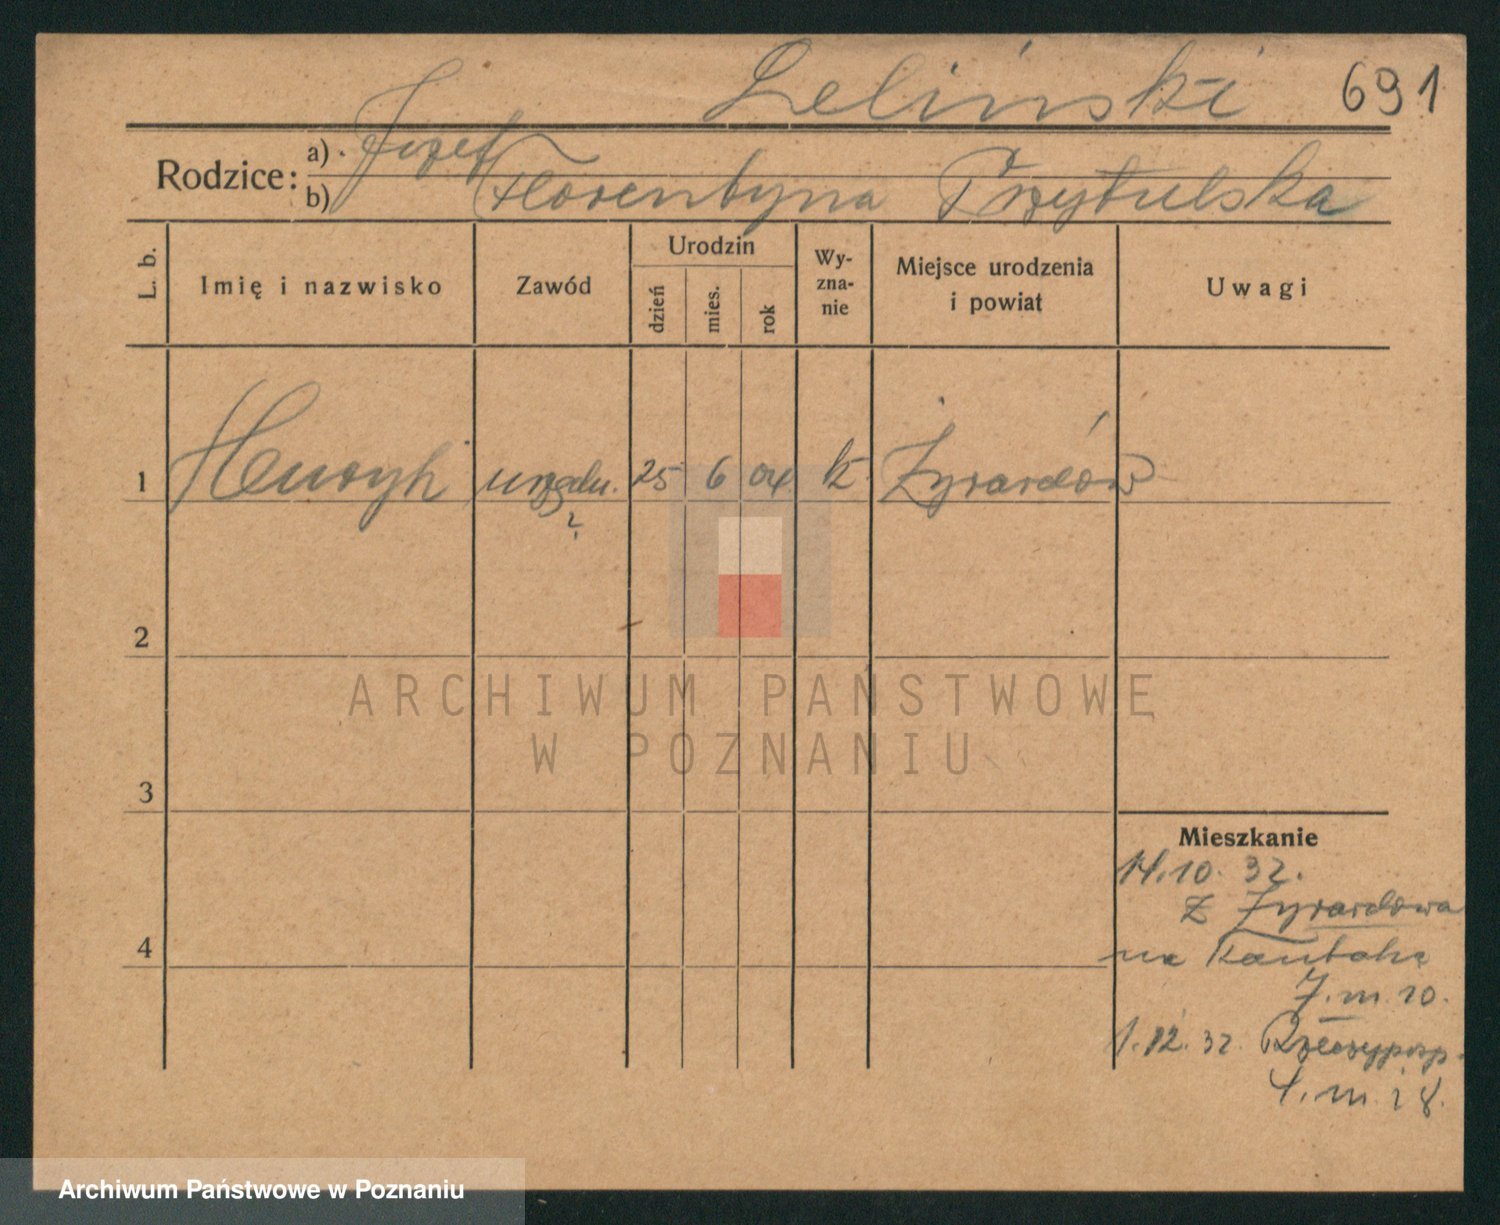 Leliński 691
Rodzice:
a) Józef
b) Florentyna Przytulska
L. b.
Imię i nazwisko
Zawód
Urodzin
dzień
mies.
rok
Wy-
zna-
nie
Miejsce urodzenia
i powiat
Uwagi
1 Henryk urzędn. 25 6 04 k Żyrardów
?
2
ARCHIWUM PAŃSTWOWE
W POZNANIU
3
Mieszkanie
14.10. 32.
z Żyrardowa
4
na Kantaka
7. m. 10.
1.12. 32. Rzeczyposp.
m. 18.
Archiwum Państwowe w Poznaniu